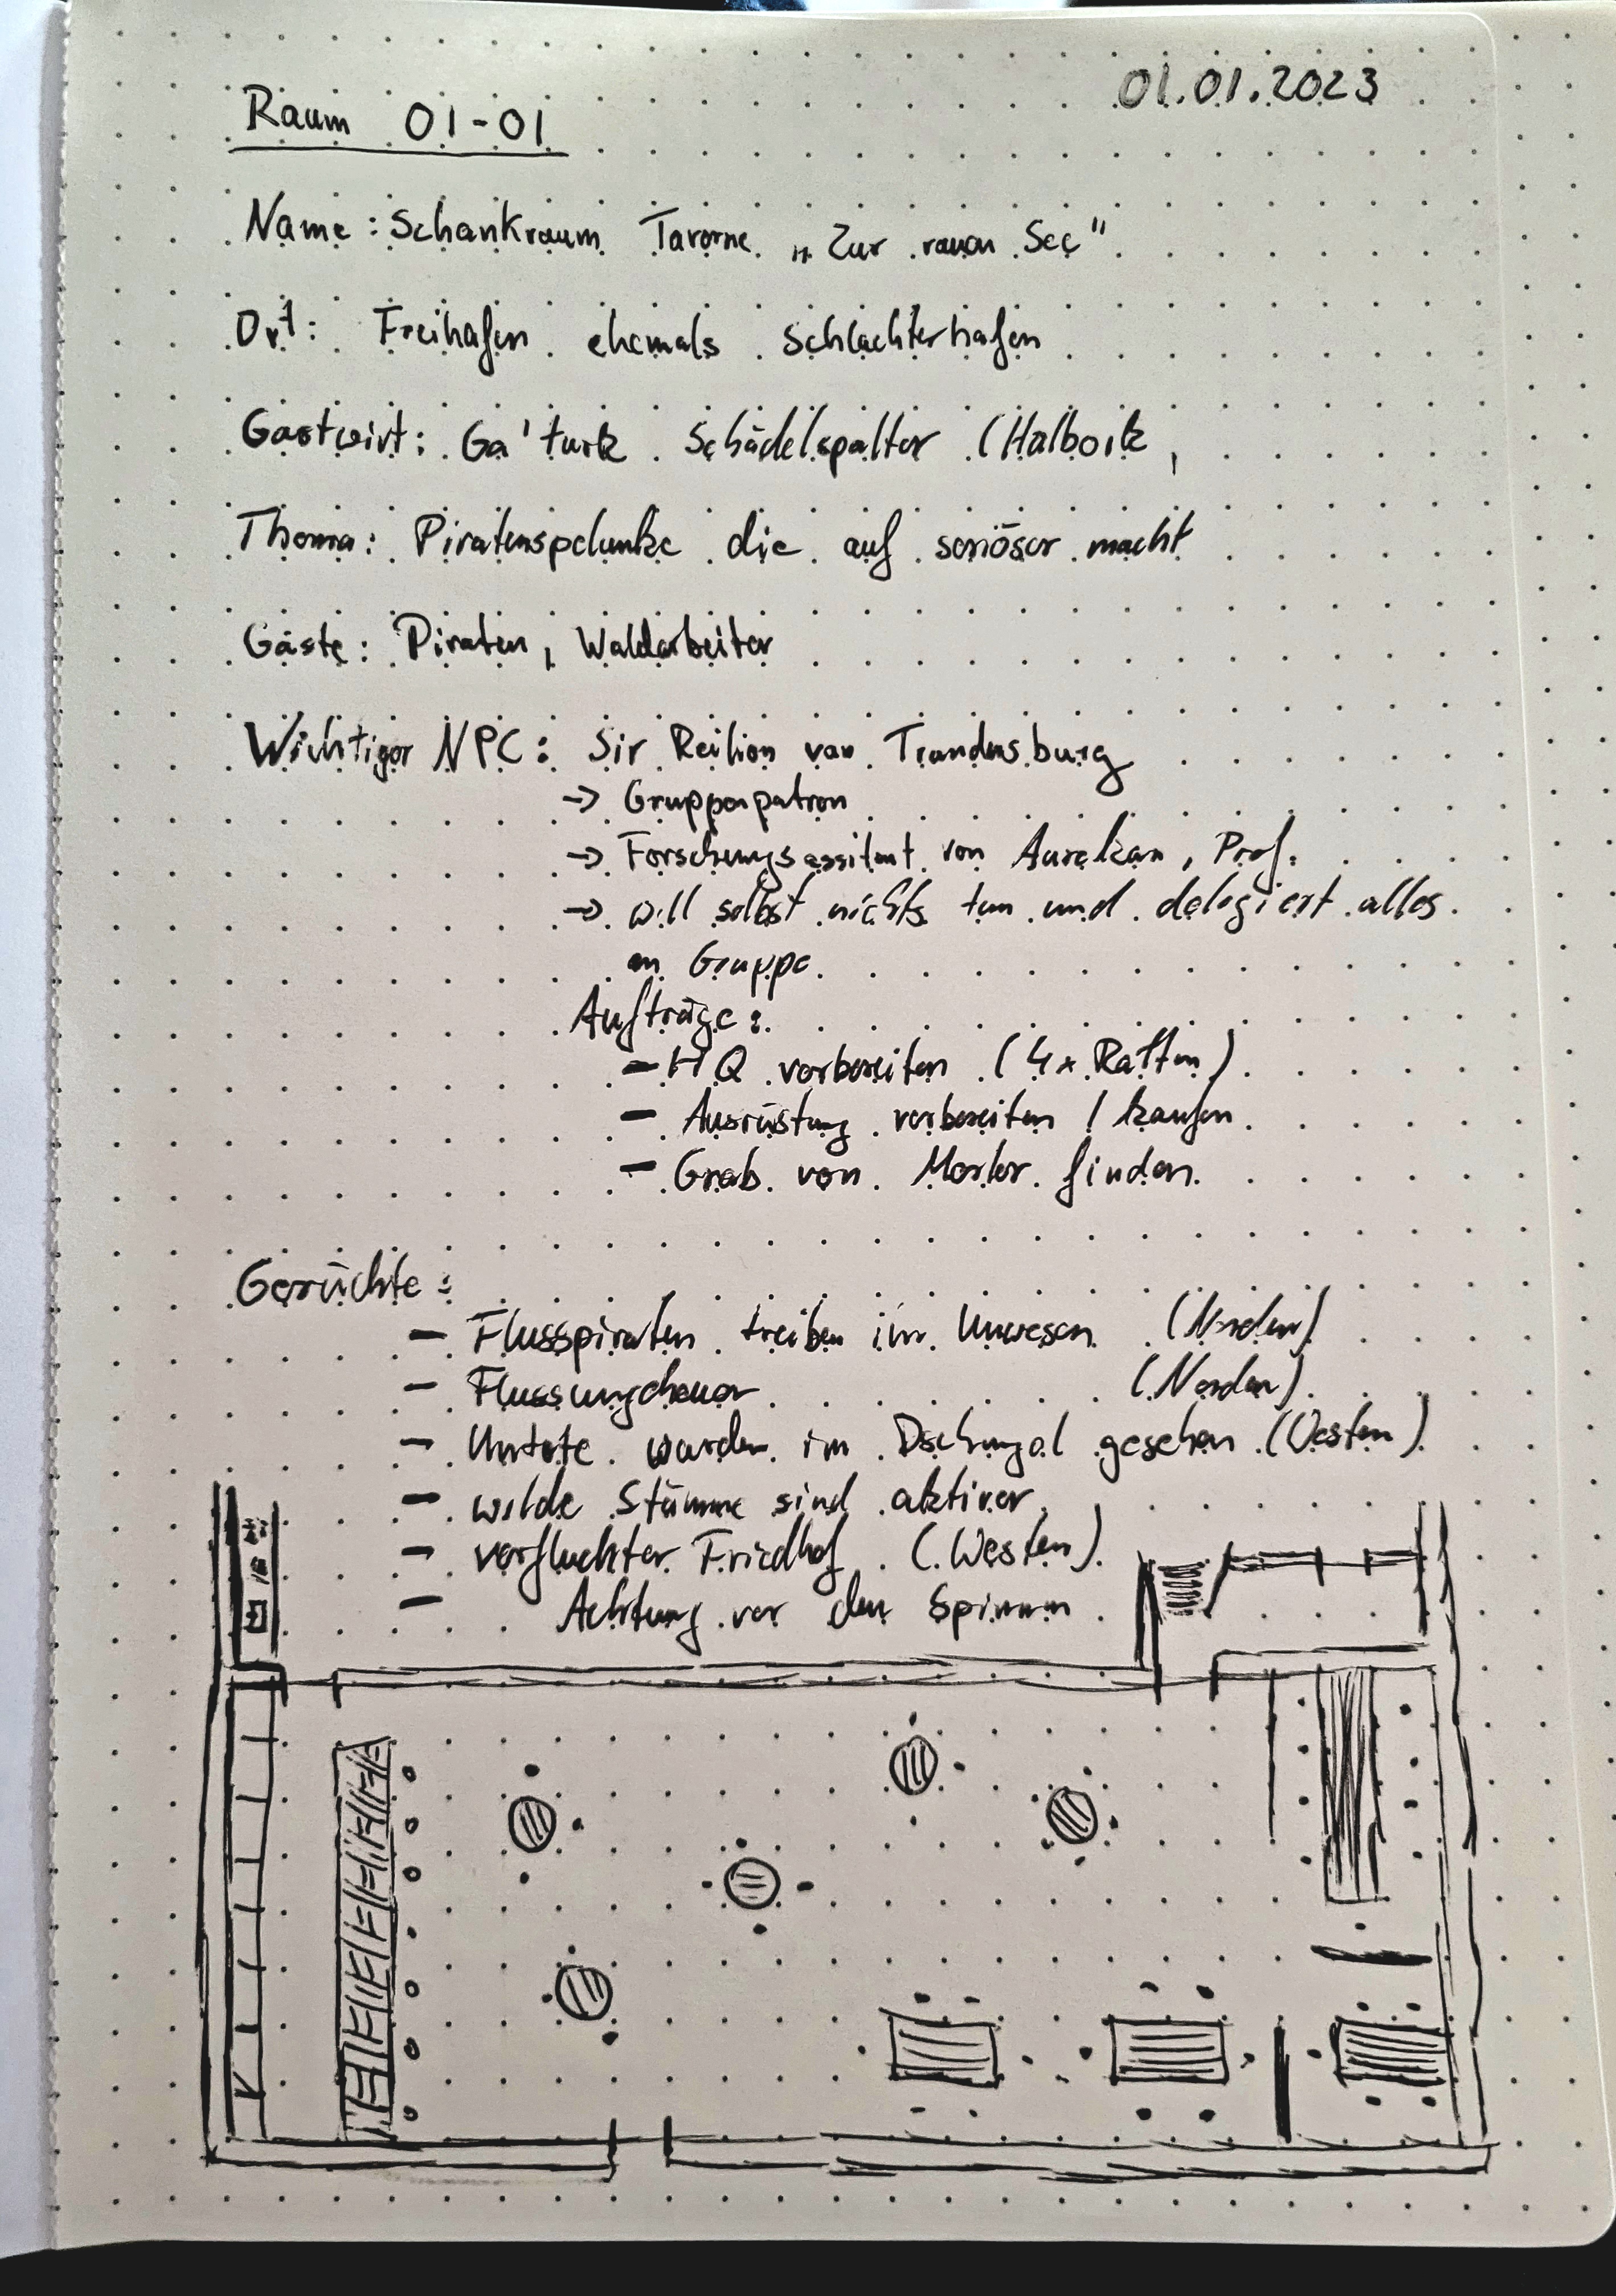 01.01.2023
Raum 01-01
Name: Schankraum Taverne „Zur rauen See"
Ort: Freihafen ehemals Schlachterhafen
Gastwirt: Ga'turk Schädelspalter (Halbork,
Thema: Piratenspelunke die auf seriöser macht
Gäste: Piraten, Waldarbeiter
Wichtiger NPC: Sir Reilion van Trandensburg
→ Gruppenpatron
→ Forschungsassitent von Aurelian, Prof.
→ will selbst nichts tun und delegiert alles
an Gruppe.
Aufträge:
- HQ vorbereiten (4x Ratten)
- Ausrüstung vorbereiten / kaufen
- Grab von finden
Gerüchte:
- Flusspiraten treiben ihr Unwesen (Norden)
- Flussungeheuer (Norden)
- Untote wurden im Dschungel gesehen (Westen)
- wilde Stämme sind aktiver
- verfluchter Friedhof (Westen)
- Achtung vor den Spinnen